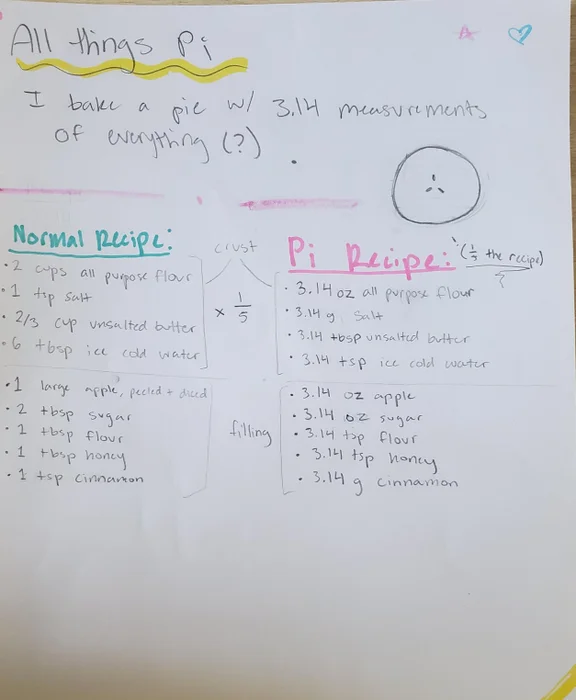 All things Pi
I bake a pie w/ 3.14 measurements
of everything (?)
Normal Recipe:
• 2 cups all purpose flour
• 1 tsp salt
• 2/3 cup unsalted butter
• 6 tbsp ice cold water
crust
x 1/5
Pi Recipe: (1/5 the recipe)
?
• 3.14 oz all purpose flour
• 3.14 g salt
• 3.14 tbsp unsalted butter
• 3.14 tsp ice cold water
• 1 large apple, peeled + diced
• 2 tbsp sugar
• 1 tbsp flour
• 1 tbsp honey
• 1 tsp cinnamon
filling
• 3.14 oz apple
• 3.14 oz sugar
• 3.14 tsp flour
• 3.14 tsp honey
• 3.14 g cinnamon